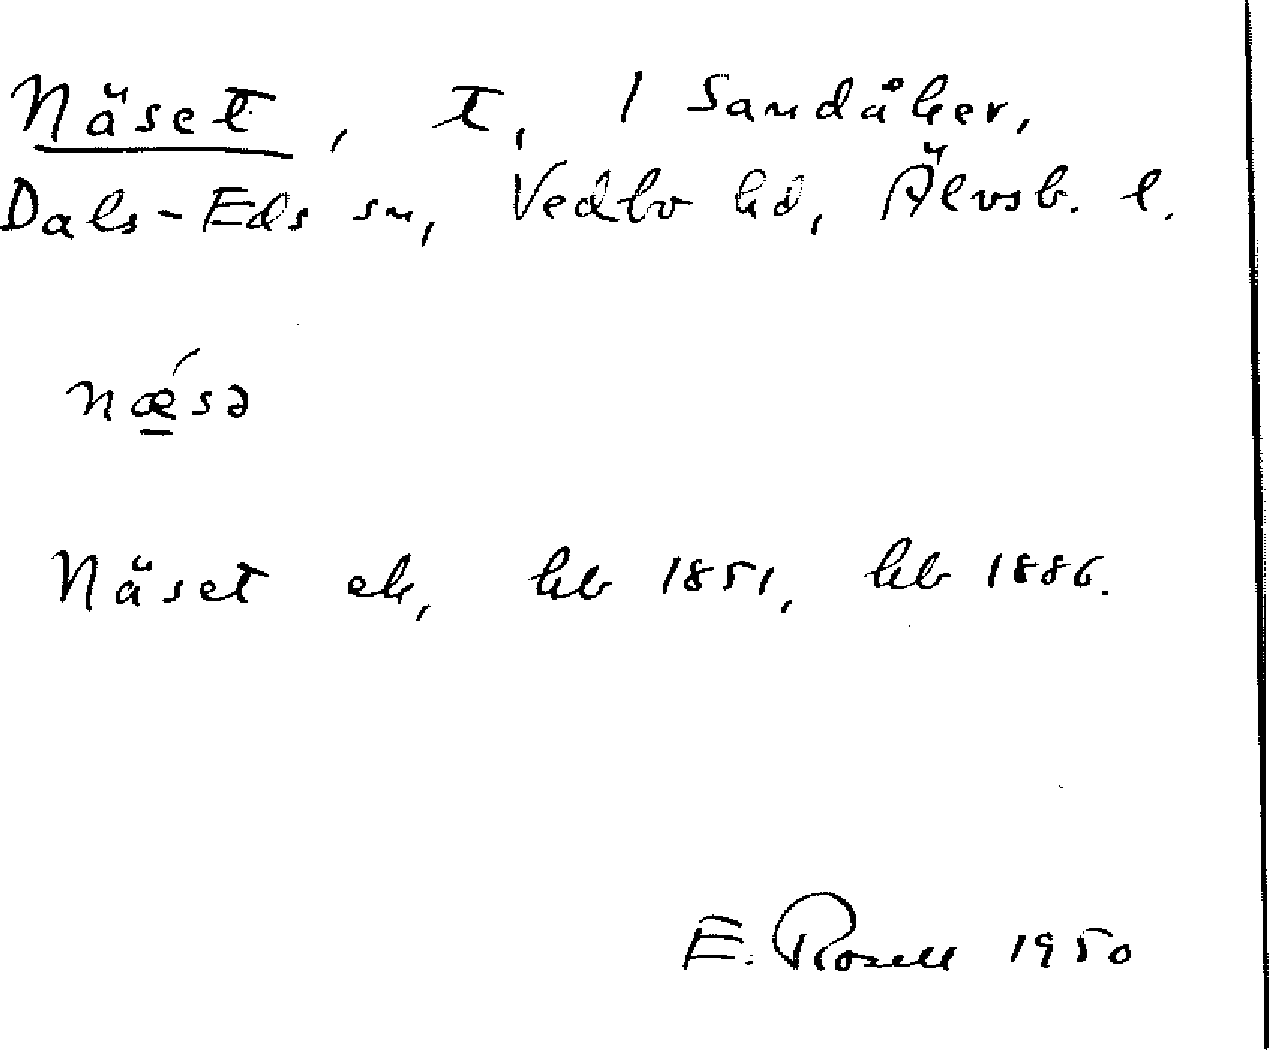 Näset, t, / Sandåker,
Dals-Eds sn, Vedbo hd, Älvsb. l.
nǽ̱sə
Näset ek, hb 1851, hb 1886.
E. Rosell 1950